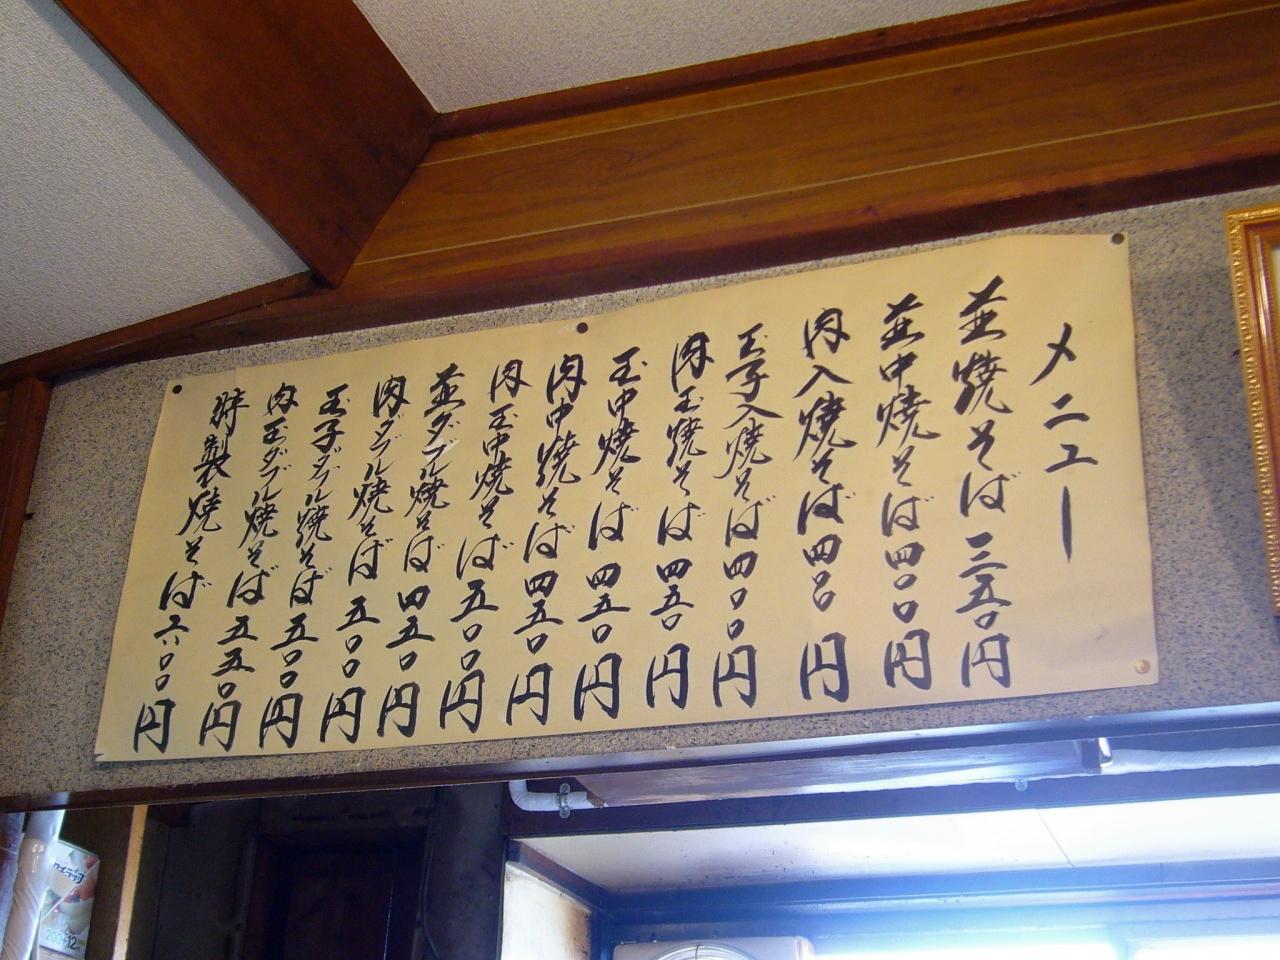 メニュー
並焼そば三五〇円
並中焼そば四〇〇円
肉入焼そば四〇〇円
玉子入焼そば四〇〇円
肉玉焼そば四五〇円
玉中焼そば四五〇円
肉中焼そば四五〇円
肉玉中焼そば五〇〇円
並ダブル焼そば四五〇円
肉ダブル焼そば五〇〇円
玉子ダブル焼そば五〇〇円
肉玉ダブル焼そば五五〇円
特製焼そば六〇〇円